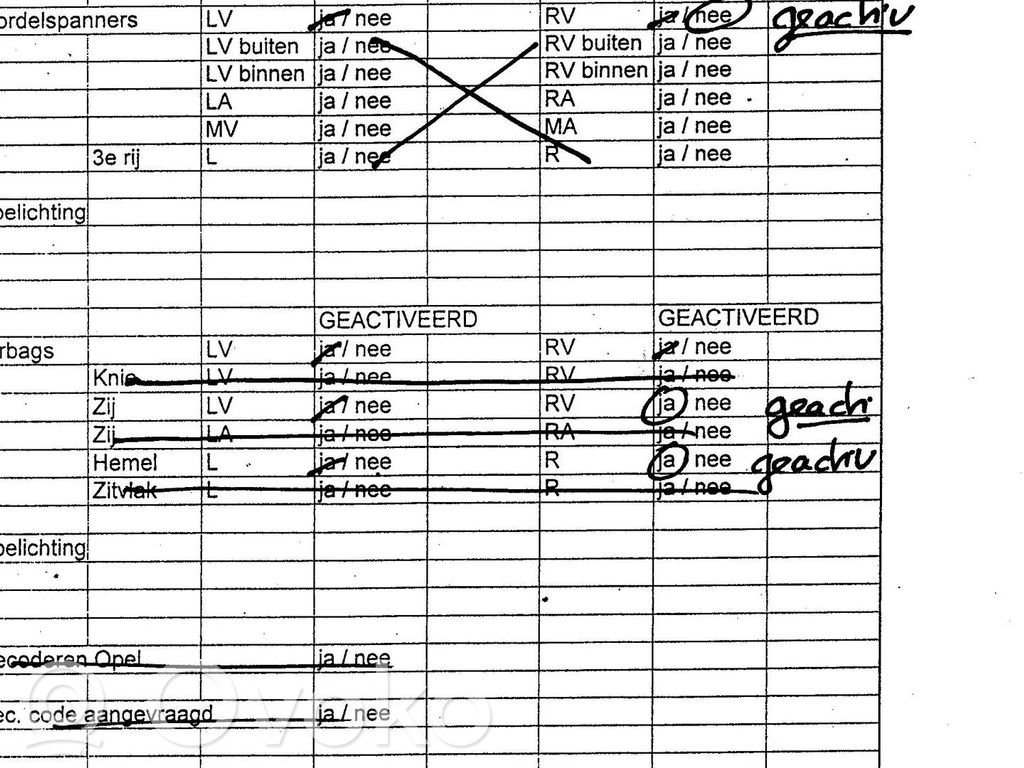 ordelspanners LV ja / nee RV ja / nee geachiv
LV buiten ja / nee RV buiten ja / nee
LV binnen ja / nee RV binnen ja / nee
LA ja / nee RA ja / nee
MV ja / nee MA ja / nee
3e rij L ja / nee R ja / nee
belichting
GEACTIVEERD GEACTIVEERD
rbags LV ja / nee RV ja / nee
Knie LV ja / nee RV ja / nee
Zij LV ja / nee RV ja nee geachi
Zij LA ja / nee RA ja / nee
Hemel L ja / nee R ja nee geachiv
Zitvlak L ja / nee R ja / nee
belichting
ecoderen Opel ja / nee
ec. code aangevraagd ja / nee
Ovoko